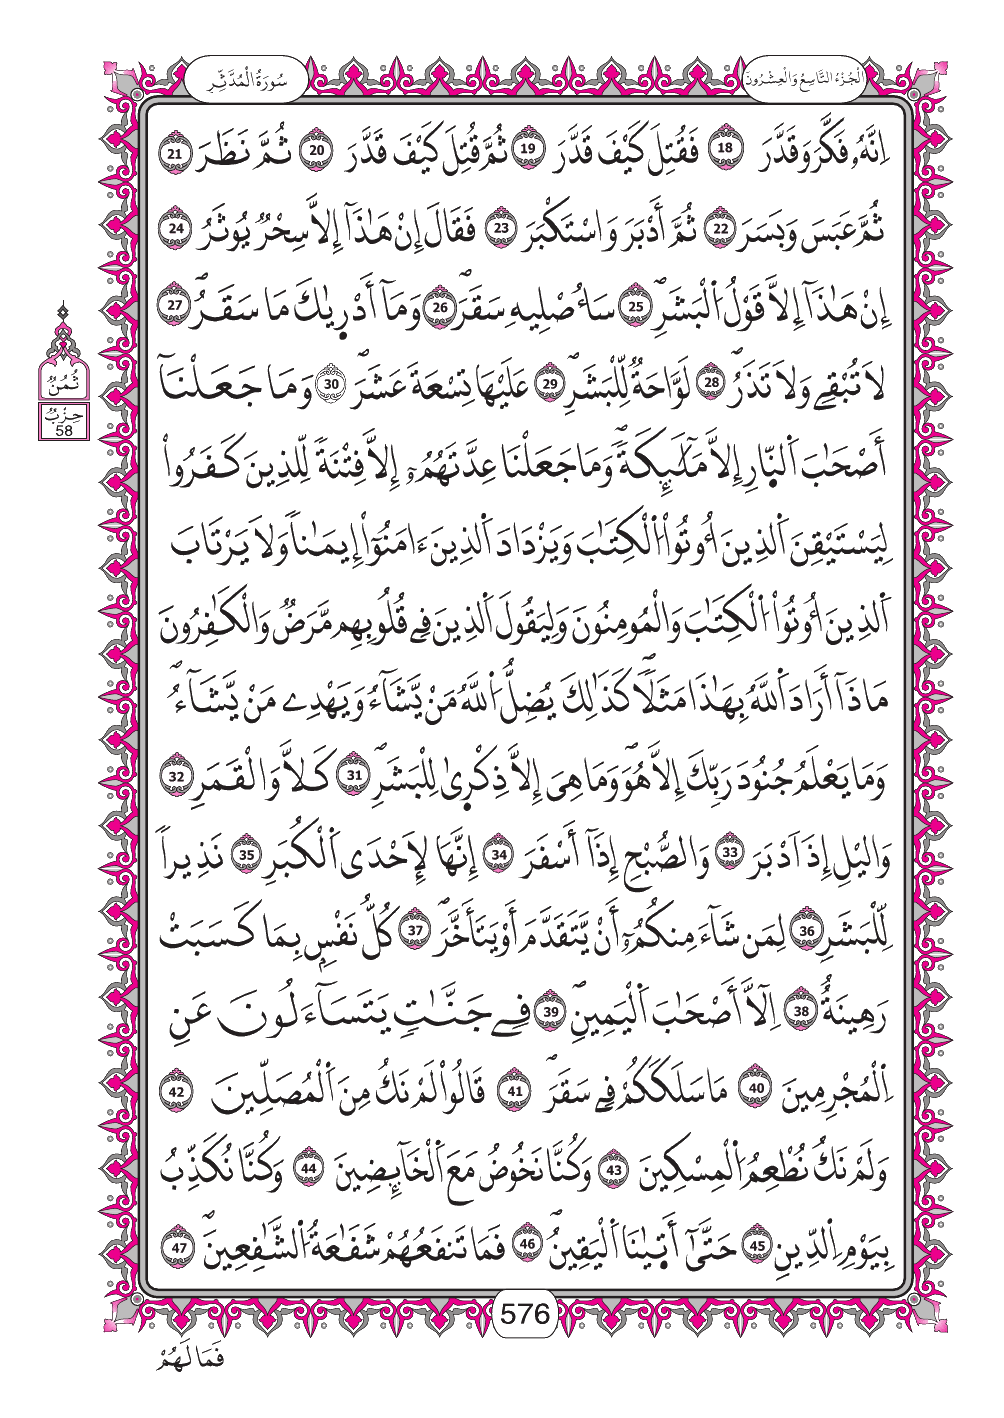 الْجُزْءُ التَّاسِعُ وَالْعِشْرُونَ
سُورَةُ الْمُدَّثِّرِ
إِنَّهُۥ فَكَّرَ وَقَدَّرَ 18 فَقُتِلَ كَيْفَ قَدَّرَ 19 ثُمَّ قُتِلَ كَيْفَ قَدَّرَ 20 ثُمَّ نَظَرَ 21
ثُمَّ عَبَسَ وَبَسَرَ 22 ثُمَّ أَدْبَرَ وَاسْتَكْبَرَ 23 فَقَالَ إِنْ هَٰذَآ إِلاَّ سِحْرٌ يُوثَرُ 24
إِنْ هَٰذَآ إِلاَّ قَوْلُ اُ۬لْبَشَرِۖ 25 سَأُصْلِيهِ سَقَرَۖ 26 وَمَآ أَدْر۪يٰكَ مَا سَقَرُۖ 27
لَا تُبْقِے وَلَا تَذَرُۖ 28 لَوَّاحَةٌ لِّلْبَشَرِۖ 29 عَلَيْهَا تِسْعَةَ عَشَرَۖ 30 وَمَا جَعَلْنَآ
أَصْحَٰبَ اَ۬لنّ۪ارِ إِلاَّ مَلَٰٓئِكَةٗۖ وَمَا جَعَلْنَا عِدَّتَهُمُۥٓ إِلاَّ فِتْنَةٗ لِّلذِينَ كَفَرُواْ
لِيَسْتَيْقِنَ اَ۬لذِينَ أُوتُواْ اُ۬لْكِتَٰبَ وَيَزْدَادَ اَ۬لذِينَ ءَامَنُوٓاْ إِيمَٰناٗ وَلَا يَرْتَابَ
اَ۬لذِينَ أُوتُواْ اُ۬لْكِتَٰبَ وَالْمُومِنُونَ وَلِيَقُولَ اَ۬لذِينَ فِے قُلُوبِهِم مَّرَضٌ وَالْكَٰفِرُونَ
مَاذَآ أَرَادَ اَ۬للَّهُ بِهَٰذَا مَثَلاٗۖ كَذَٰلِكَ يُضِلُّ اُ۬للَّهُ مَنْ يَّشَآءُ وَيَهْدِے مَنْ يَّشَآءُۖ
وَمَا يَعْلَمُ جُنُودَ رَبِّكَ إِلاَّ هُوَۖ وَمَا هِيَ إِلاَّ ذِكْر۪يٰ لِلْبَشَرِۖ 31 كَلاَّ وَالْقَمَرِ 32
وَاليْلِ إِذَ اَدْبَرَ 33 وَالصُّبْحِ إِذَآ أَسْفَرَ 34 إِنَّهَا لَإِحْدَى اَ۬لْكُبَرِ 35 نَذِيراٗ
لِّلْبَشَرِ 36 لِمَن شَآءَ مِنكُمُۥٓ أَنْ يَّتَقَدَّمَ أَوْ يَتَأَخَّرَۖ 37 كُلُّ نَفْسِۭ بِمَا كَسَبَتْ
رَهِينَةٌ 38 اِلَّآ أَصْحَٰبَ اَ۬لْيَمِينِۖ 39 فِے جَنَّٰتٖ يَتَسَآءَلُونَ عَنِ
اِ۬لْمُجْرِمِينَ 40 مَا سَلَكَكُمْ فِے سَقَرَۖ 41 قَالُواْ لَمْ نَكُ مِنَ اَ۬لْمُصَلِّينَ 42
وَلَمْ نَكُ نُطْعِمُ اُ۬لْمِسْكِينَ 43 وَكُنَّا نَخُوضُ مَعَ اَ۬لْخَآئِضِينَ 44 وَكُنَّا نُكَذِّبُ
بِيَوْمِ اِ۬لدِّينِ 45 حَتَّىٰٓ أَت۪يٰنَا اَ۬لْيَقِينُۖ 46 فَمَا تَنفَعُهُمْ شَفَٰعَةُ اُ۬لشَّٰفِعِينَۖ 47
ثُمُنٌ
حِزْبٌ
58
576
فَمَا لَهُمْ